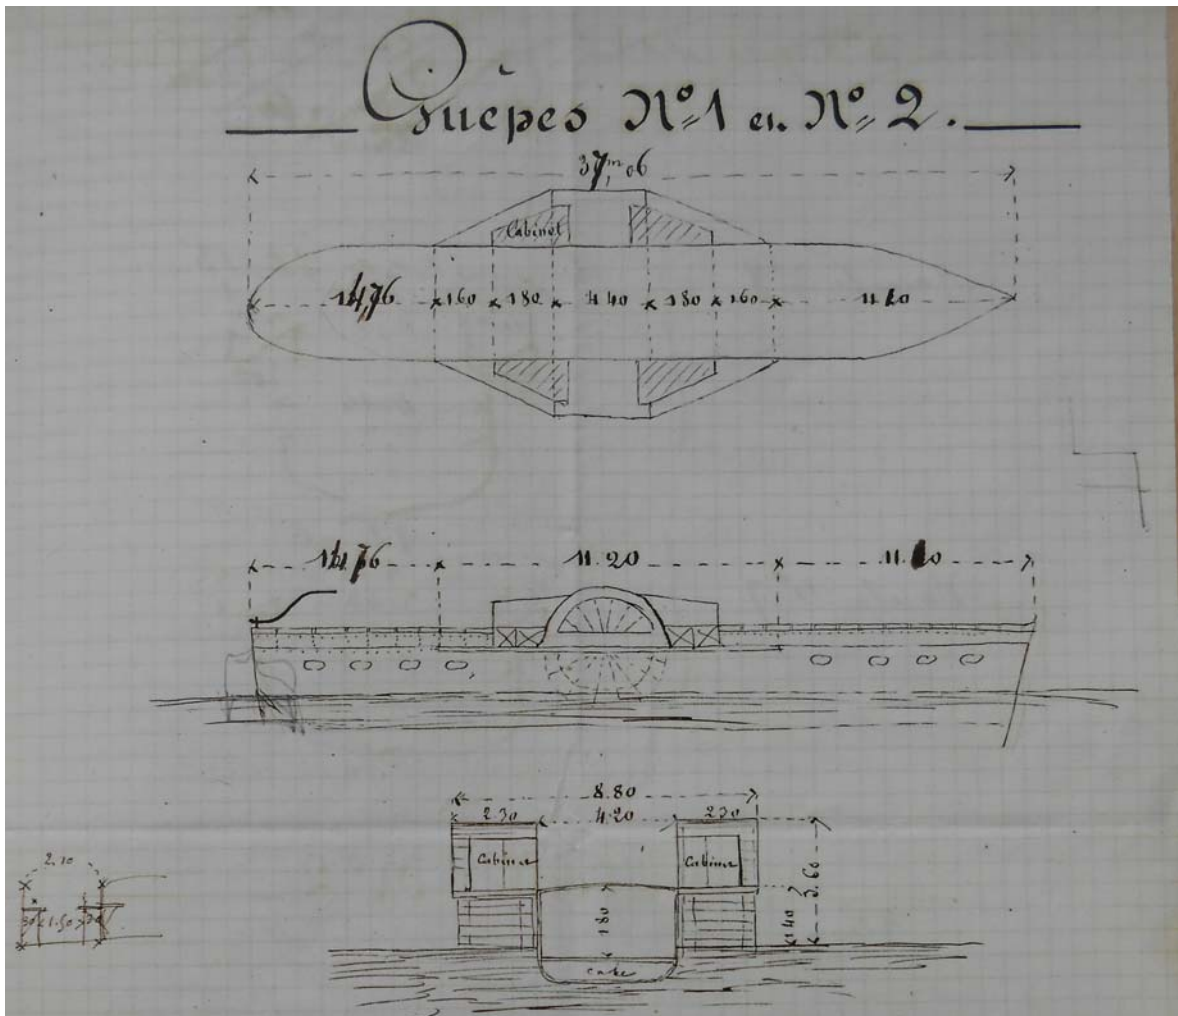 Guèpes Nº 1 et Nº 2.
37,m06
Cabinet
14,76 160 180 440 180 160 11 10
14,76 11.20 11.10
8.80
2.30 4.20 2.30
Cabinet Cabinet
3.60
180
1.40
cale
2.10
30 1.50 30